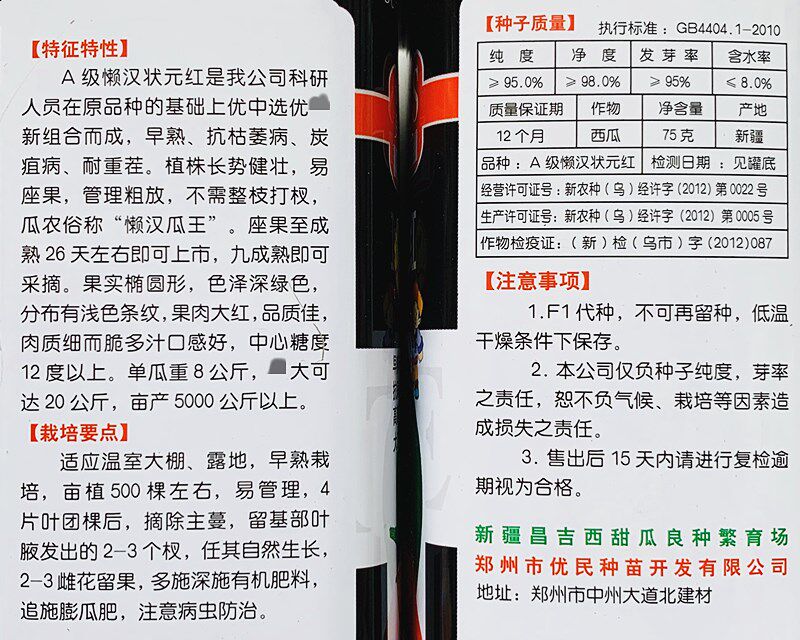 【特征特性】
A 级懒汉状元红是我公司科研
人员在原品种的基础上优中选优
新组合而成，早熟、抗枯萎病、炭
疽病、耐重茬。植株长势健壮，易
座果，管理粗放，不需整枝打杈，
瓜农俗称“懒汉瓜王”。座果至成
熟 26 天左右即可上市，九成熟即可
采摘。果实椭圆形，色泽深绿色，
分布有浅色条纹，果肉大红，品质佳，
肉质细而脆多汁口感好，中心糖度
12 度以上。单瓜重 8 公斤，大可
达 20 公斤，亩产 5000 公斤以上。
【栽培要点】
适应温室大棚、露地，早熟栽
培，亩植 500 棵左右，易管理，4
片叶团棵后，摘除主蔓，留基部叶
腋发出的 2-3 个杈，任其自然生长，
2-3 雌花留果，多施深施有机肥料，
追施膨瓜肥，注意病虫防治。
【种子质量】 执行标准：GB4404.1-2010
纯 度 净 度 发 芽 率 含水率
≥ 95.0% ≥ 98.0% ≥ 95% ≤ 8.0%
质量保证期 作物 净含量 产地
12 个月 西瓜 75 克 新疆
品种：A 级懒汉状元红 检测日期：见罐底
经营许可证号：新农种（乌）经许字 (2012) 第 0022 号
生产许可证号：新农种（乌）经许字 (2012) 第 0005 号
作物检疫证：（新）检（乌市）字 (2012)087
【注意事项】
1.F1 代种，不可再留种，低温
干燥条件下保存。
2. 本公司仅负种子纯度，芽率
之责任，恕不负气候、栽培等因素造
成损失之责任。
3. 售出后 15 天内请进行复检逾
期视为合格。
新疆昌吉西甜瓜良种繁育场
郑州市优民种苗开发有限公司
地址：郑州市中州大道北建材